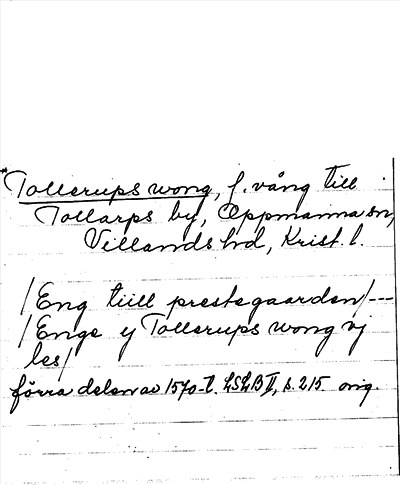 *Tollerups wong, f. vång till
Tollarps by, Oppmanna sn,
Villands hd, Krist. l.
/Eng tiill prestegaarden/---
/Enge y Tollerups wong vj
les/
förra delen av 1570-t. LSLB II, s. 215. orig.